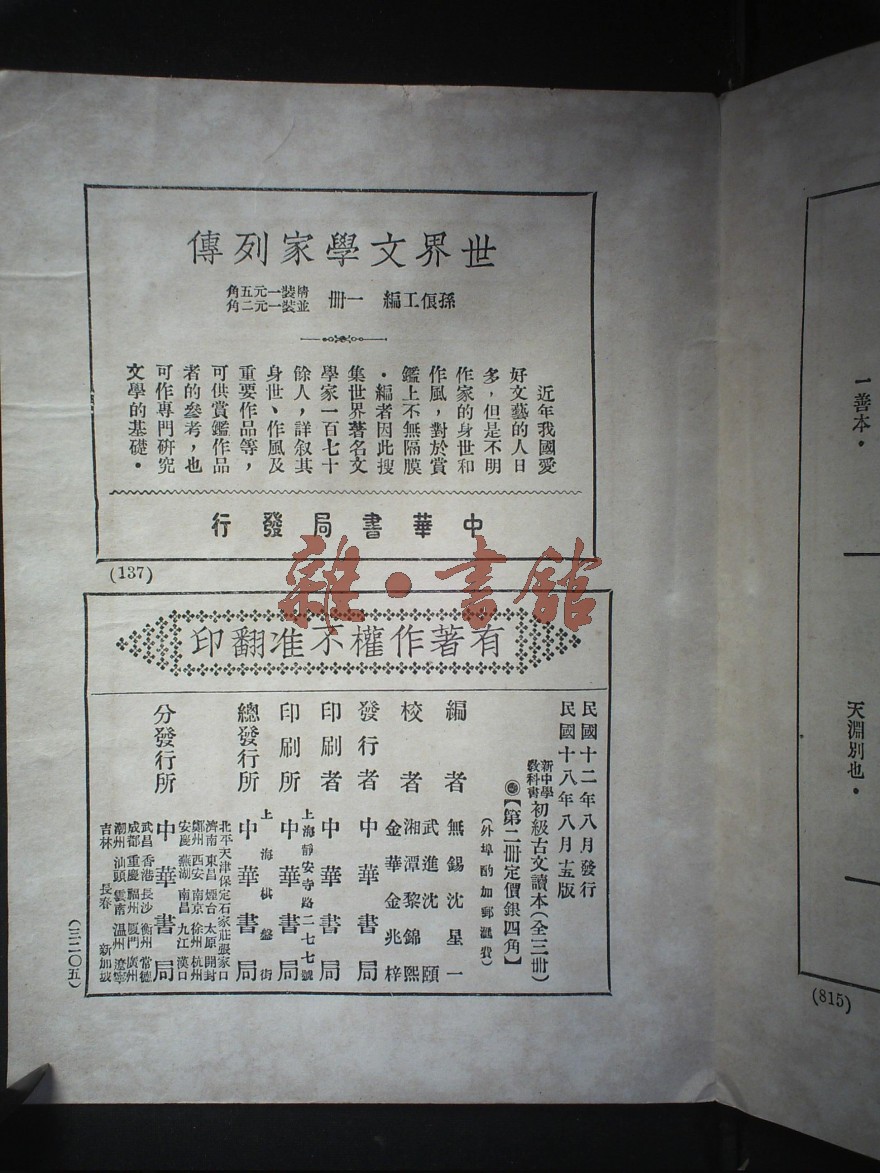 世界文學家列傳
孫俍工編 一冊
精裝一元五角
並裝一元二角
近年我國愛
好文藝的人日
多，但是不明
作家的身世和
作風，對於賞
鑑上不無隔膜
。編者因此搜
集世界著名文
學家一百七十
餘人，詳叙其
身世、作風及
重要作品等，
可供賞鑑作品
者的參考，也
可作專門研究
文學的基礎。
中華書局發行
(137)
雜·書館
有著作權不准翻印
民國十二年八月發行
民國十八年八月十五版
新中學教科書 初級古文讀本（全三冊）
【第二冊定價銀四角】
（外埠酌加郵匯費）
編者 無錫沈星一
校者 武進沈頤
湘潭黎錦熙
金華金兆梓
發行者 中華書局
印刷者 中華書局
上海靜安寺路二七七號
印刷所 中華書局
上海棋盤街
總發行所 中華書局
北平天津保定石家莊張家口
濟南東昌煙台太原開封
鄭州西安南京徐州杭州
安慶蕪湖南昌九江漢口
分發行所 中華書局
武昌香港長沙衡州常德
成都重慶福州廈門廣州
潮州汕頭雲南溫州遼寧
吉林長春新加坡
(三二〇五)
一善本。
天淵別也。
(815)